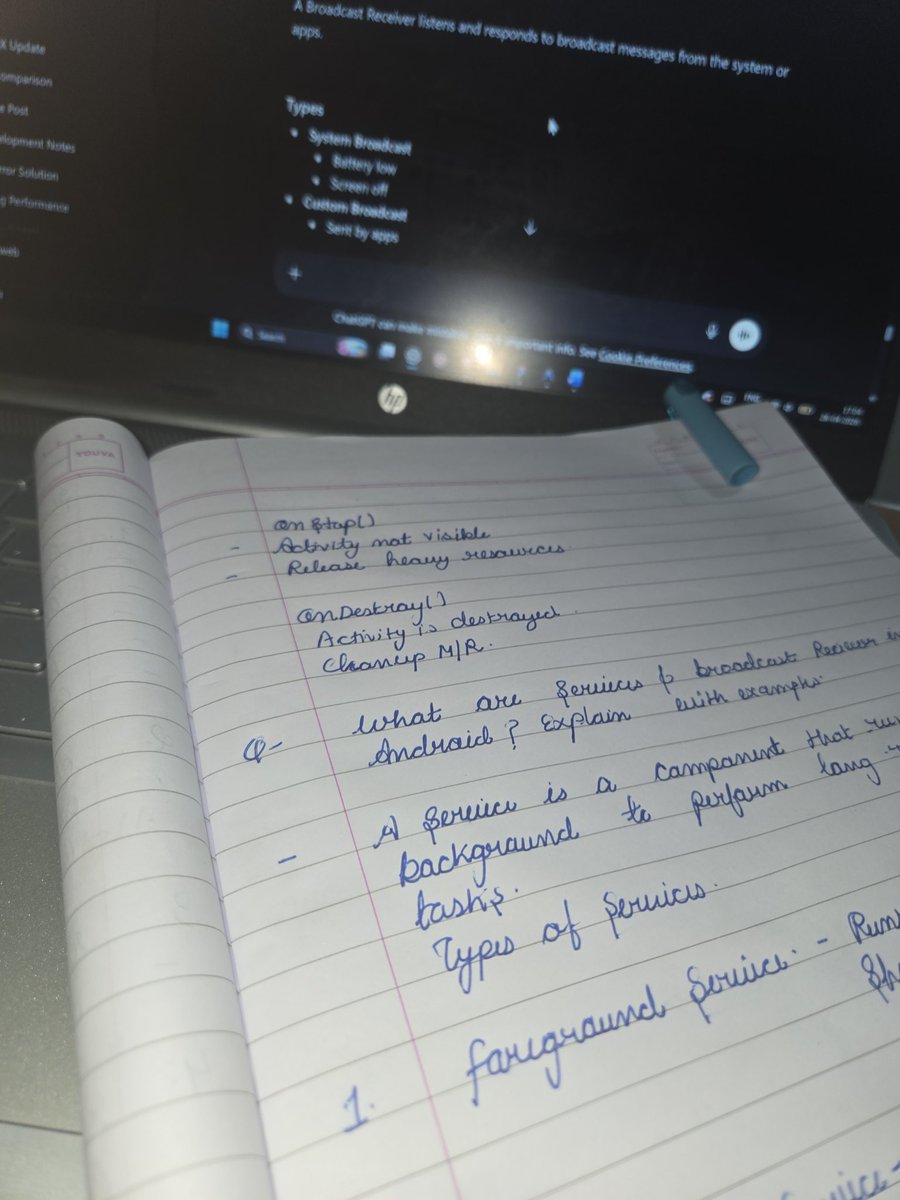 A Broadcast Receiver listens and responds to broadcast messages from the system or
apps.
Types
System Broadcast
Battery low
Screen off
Custom Broadcast
Sent by apps
X Update
omparison
e Post
elopment Notes
rror Solution
g Performance
web
ChatGPT can make important info. See Cookie Preferences
Search
17:04
hp
YOUVA
onStop()
- Activity not visible
- Release heavy resources.
onDestroy()
Activity is destroyed.
Cleanup M/R.
Q- What are Services & broadcast Reciever in
Android? Explain with examples.
- A Service is a component that run
background to perform long r
tasks.
Types of Services.
1. foreground Service: - Runs
Sh
Service-